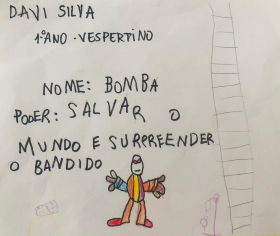 DAVI SILVA
1º ANO - VESPERTINO
NOME: BOMBA
PODER: SALVAR O
MUNDO E SURPREENDER
O BANDIDO